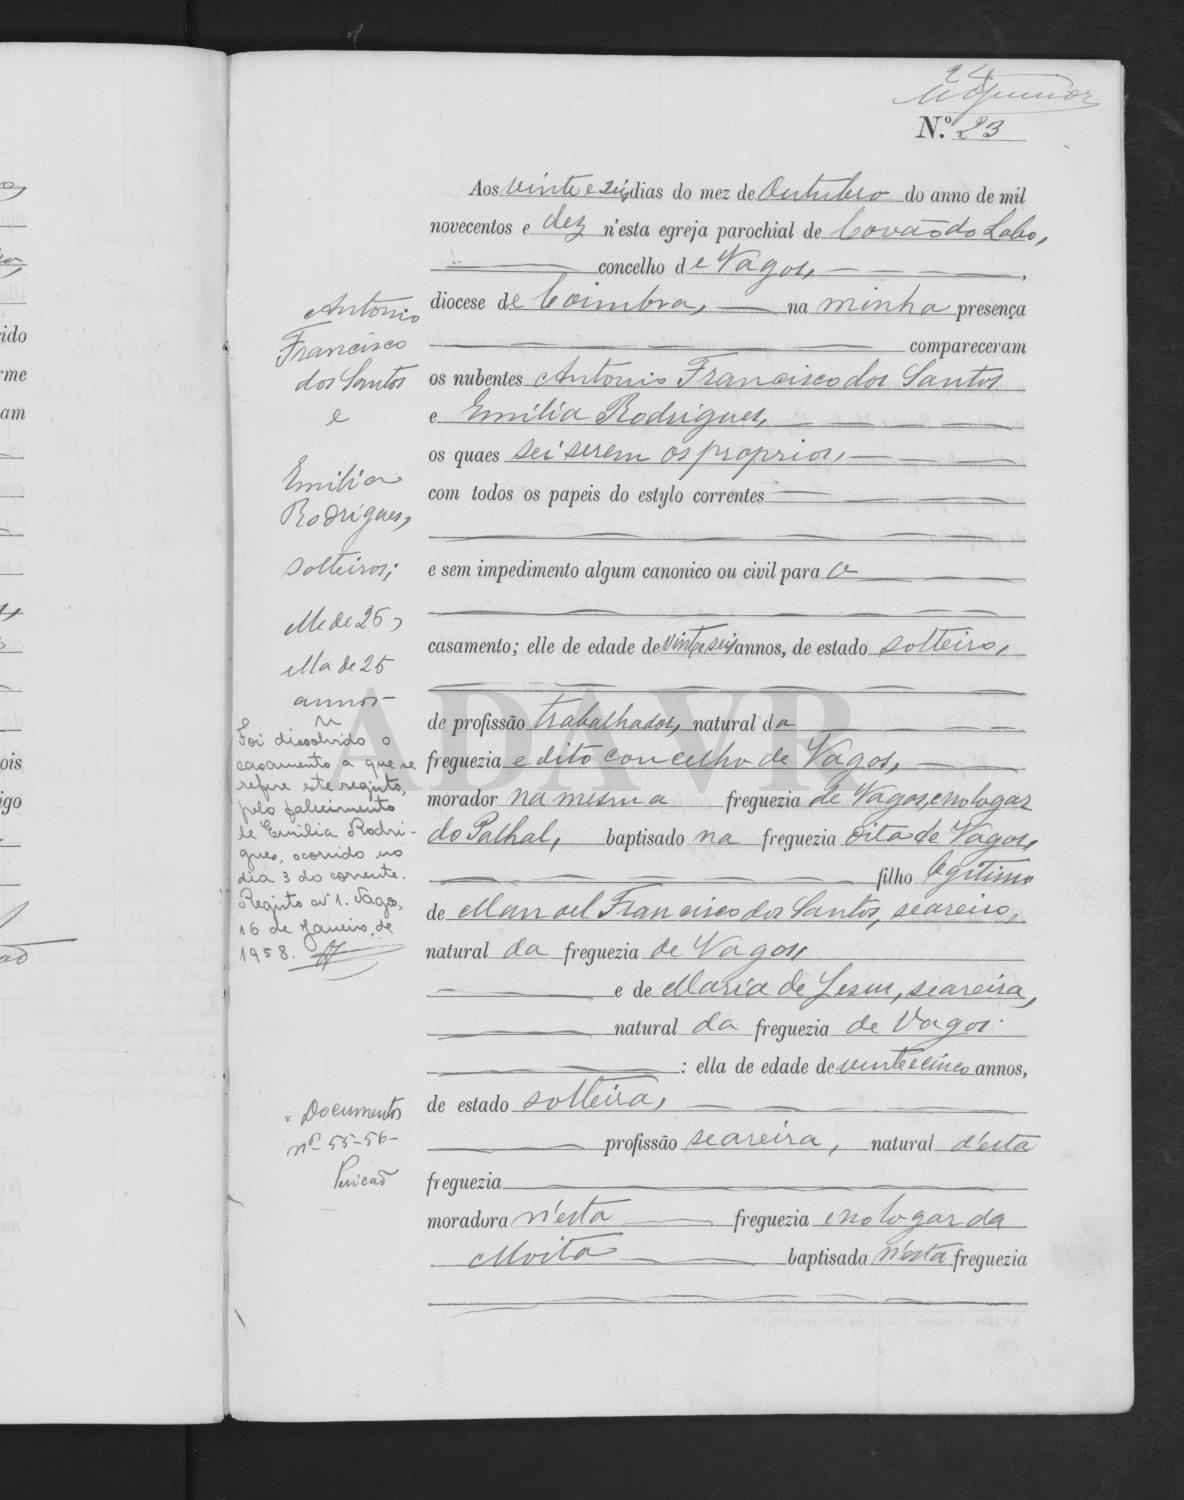 24
N.º 23
Aos vinte e seis dias do mez de Outubro do anno de mil
novecentos e dez n'esta egreja parochial de Covão do Lobo,
concelho de Vagos,
diocese de Coimbra, na minha presença
compareceram
os nubentes Antonio Francisco dos Santos
e Emilia Rodrigues,
os quaes sei serem os proprios,
com todos os papeis do estylo correntes
e sem impedimento algum canonico ou civil para o
casamento; elle de edade de vinte seis annos, de estado solteiro,
de profissão trabalhador, natural da
freguezia e dito concelho de Vagos,
morador na mesma freguezia de Vagos, e no logar
do Palhal, baptisado na freguezia dita de Vagos,
filho legitimo
de Manoel Francisco dos Santos, seareiro,
natural da freguezia de Vagos
e de Maria de Jesus, seareira,
natural da freguezia de Vagos
: ella de edade de vinte e cinco annos,
de estado solteira,
profissão seareira, natural d'esta
freguezia
moradora n'esta freguezia e no logar da
Moita baptisada n'esta freguezia
Antonio
Francisco
dos Santos
e
Emilia
Rodrigues,
solteiros;
elle de 26,
ella de 25
annos
Foi dissolvido o
casamento a que se
refere este registo,
pelo falecimento
de Emilia Rodri-
gues, ocorrido no
dia 3 do corrente.
Registo nº 1. Vagos,
16 de Janeiro de
1958.
Documentos
nº 55-56-
ido
rme
am
ois
igo
ADAVR